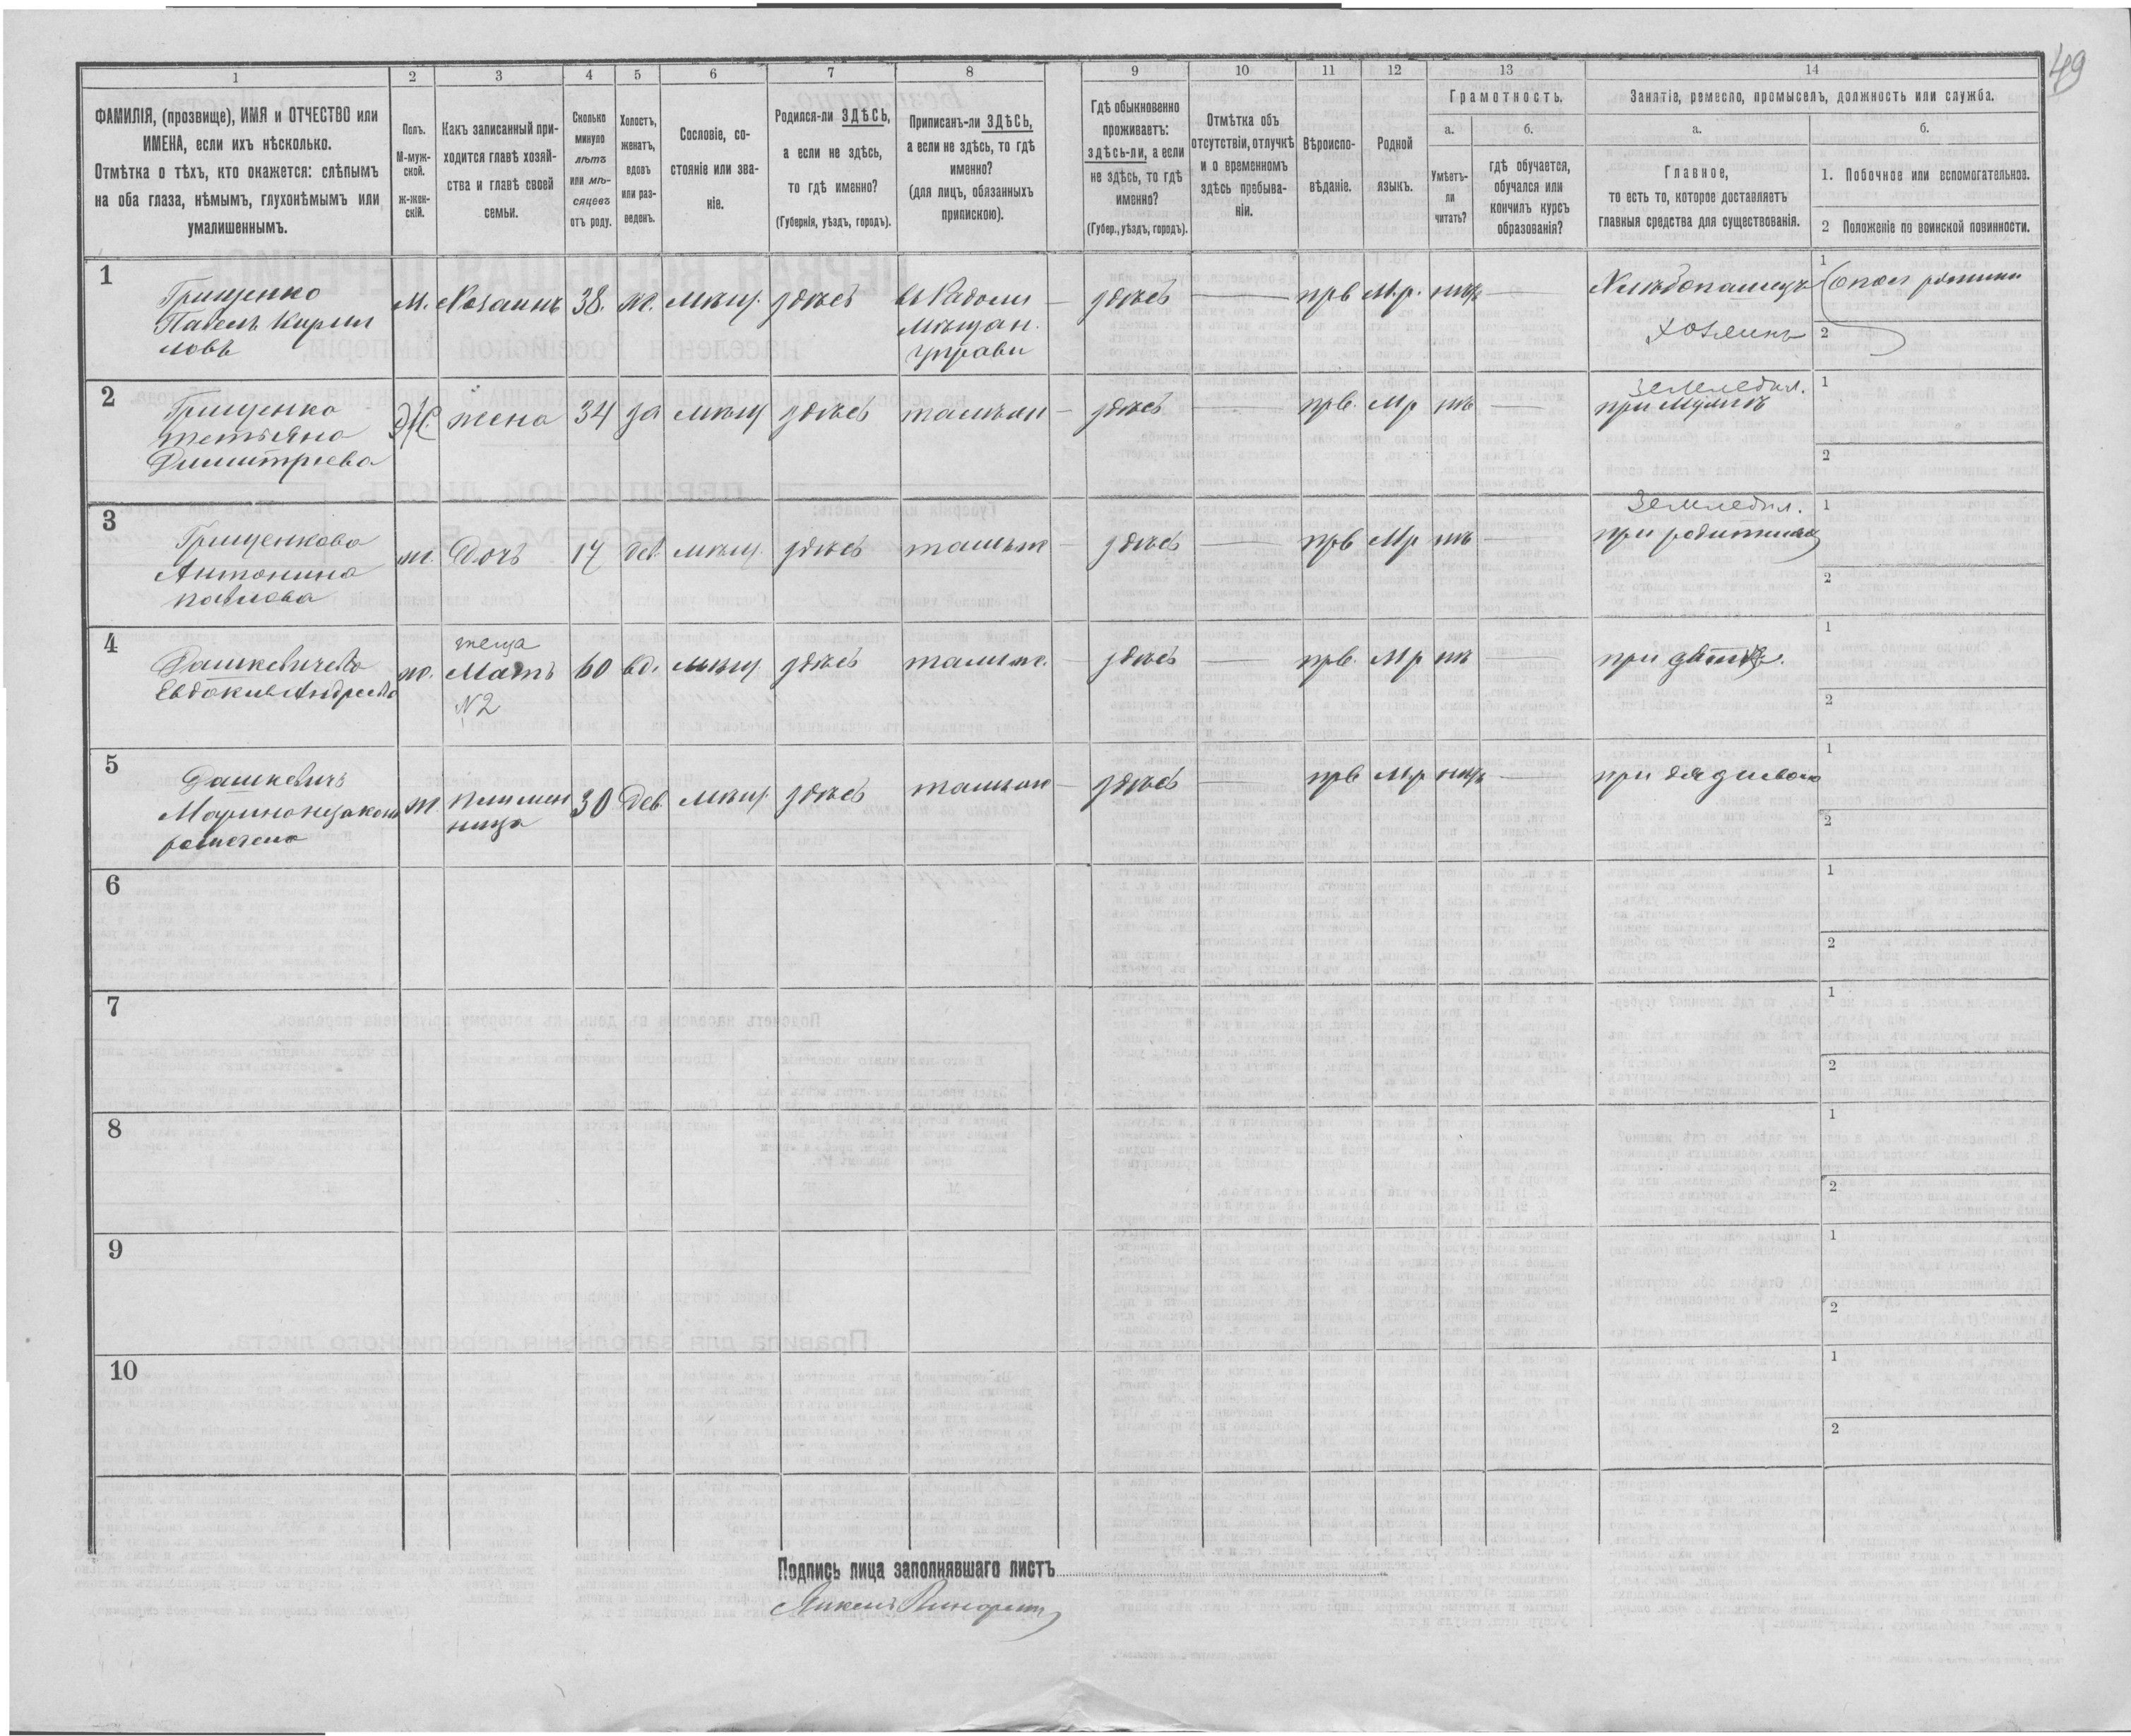 49
1 2 3 4 5 6 7 8 9 10 11 12 13 14
ФАМИЛІЯ, (прозвище), ИМЯ и ОТЧЕСТВО или
ИМЕНА, если ихъ нѣсколько.
Отмѣтка о тѣхъ, кто окажется: слѣпымъ
на оба глаза, нѣмымъ, глухонѣмымъ или
умалишеннымъ.
Полъ.
М-муж-
ской.
ж-жен-
скій.
Какъ записанный при-
ходится главѣ хозяй-
ства и главѣ своей
семьи.
Сколько
минуло
лѣтъ
или мѣ-
сяцевъ
отъ роду.
Холостъ,
женатъ,
вдовъ
или раз-
веденъ.
Сословіе, со-
стояніе или зва-
ніе.
Родился-ли ЗДѢСЬ,
а если не здѣсь,
то гдѣ именно?
(Губернія, уѣздъ, городъ).
Приписанъ-ли ЗДѢСЬ,
а если не здѣсь, то гдѣ
именно?
(для лицъ, обязанныхъ
припискою).
Гдѣ обыкновенно
проживаетъ:
здѣсь-ли, а если
не здѣсь, то гдѣ
именно?
(Губер., уѣздъ, городъ).
Отмѣтка объ
отсутствіи, отлучкѣ
и о временномъ
здѣсь пребыва-
ніи.
Вѣроиспо-
вѣданіе.
Родной
языкъ.
Грамотность.
а.
Умѣетъ-
ли
читать?
б.
гдѣ обучается,
обучался или
кончилъ курсъ
образованія?
Занятіе, ремесло, промыселъ, должность или служба.
а.
Главное,
то есть то, которое доставляетъ
главныя средства для существованія.
б.
1. Побочное или вспомогательное.
2 Положеніе по воинской повинности.
1
Грищенко
Павелъ Кирил
ловъ
м. Хозяинъ 38. ж. мѣщ. здѣсь
въ Радом
мѣщан.
управи
— здѣсь — прв М.р. нѣтъ —
Хлѣбопашецъ
хозяинъ
1
2
2
Грищенко
тетьяна
Димитрiева
Ж жена 34 за мѣщ здѣсь тамъ — здѣсь — прв. Мр нѣ —
Земледѣл.
при мужѣ
1
2
3
Грищенкова
Антонина
павлова
ж. Дочь 17 дев. мѣщ. здѣсь тамъ здѣсь — прв Мр нѣ —
Земледѣл.
при родителяхъ
1
2
4
Дашкевичева
Евдокия Андреева
ж.
теща
Мать
N2
60 вд. мѣщ. здѣсь тамъ. — здѣсь — прв. Мр нѣ —
при дѣтяхъ.
1
2
5
Дашкевичъ
ж.
племен
ница
30 Дев. мѣщ. здѣсь тамъ — здѣсь — прв Мр нѣтъ —
при
1
2
6
1
2
7
1
2
8
1
2
9
1
2
10
1
2
Подпись лица заполнявшаго листъ